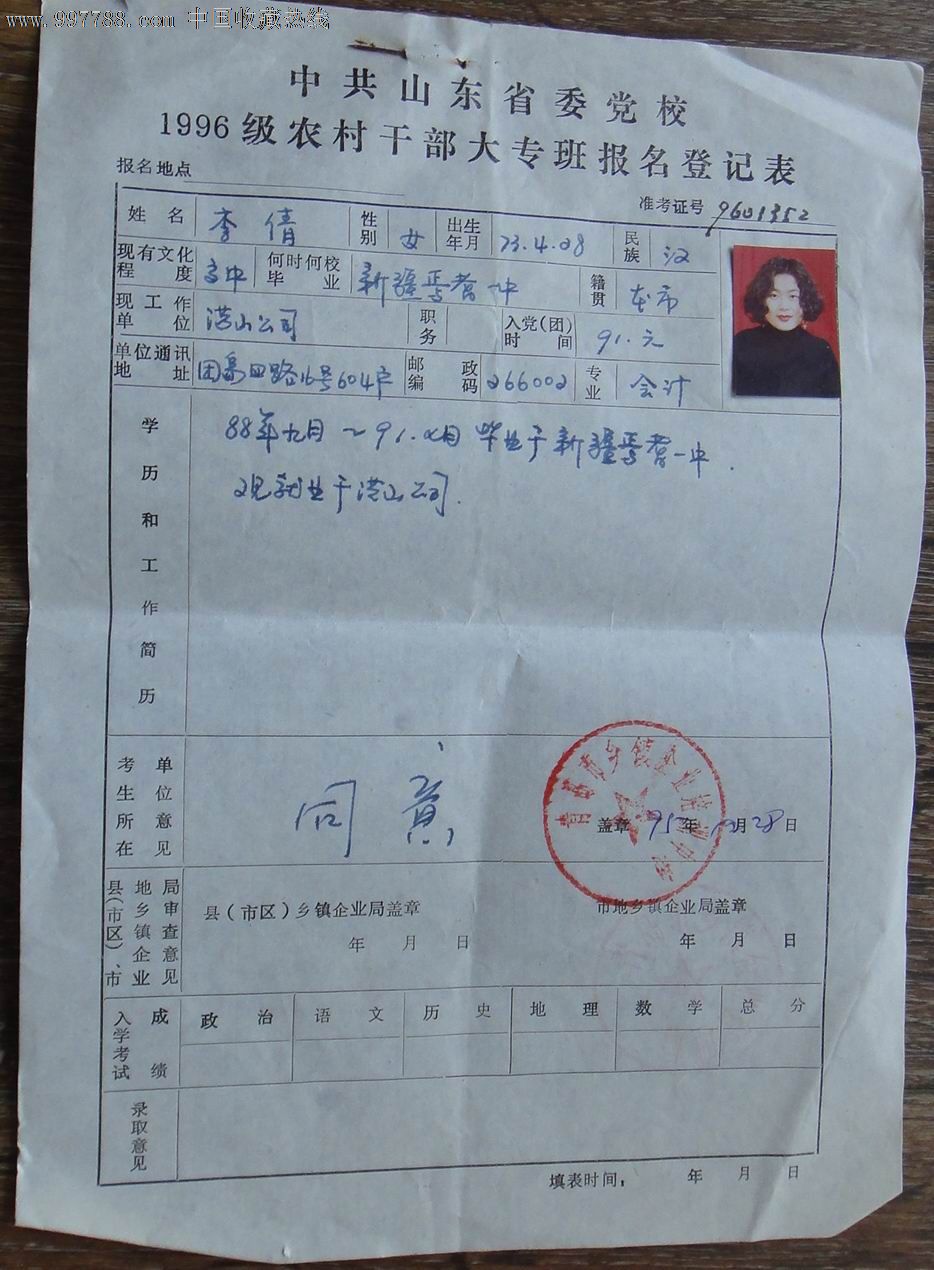 www.997788.com 中国收藏热线
中共山东省委党校
1996级农村干部大专班报名登记表
报名地点
准考证号 9601352
姓名 李倩 性别 女 出生年月 73.4.28 民族 汉
现有文化程度 高中 何时何校毕业 新疆焉耆一中 籍贯 本市
现工作单位 洪山公司 职务 入党(团)时间 91.元
单位通讯地址 团岛四路16号604户 邮政编码 266002 专业 会计
学历和工作简历
88年九月~91.七月 毕业于新疆焉耆一中.
现就业于洪山公司.
考生所在单位意见 同意
青岛市乡镇企业培训中心
盖章 95年 月28日
县(市区)、市地乡镇企业局审查意见
县(市区)乡镇企业局盖章 市地乡镇企业局盖章
年 月 日 年 月 日
入学考试成绩 政治 语文 历史 地理 数学 总分
录取意见
填表时间: 年 月 日